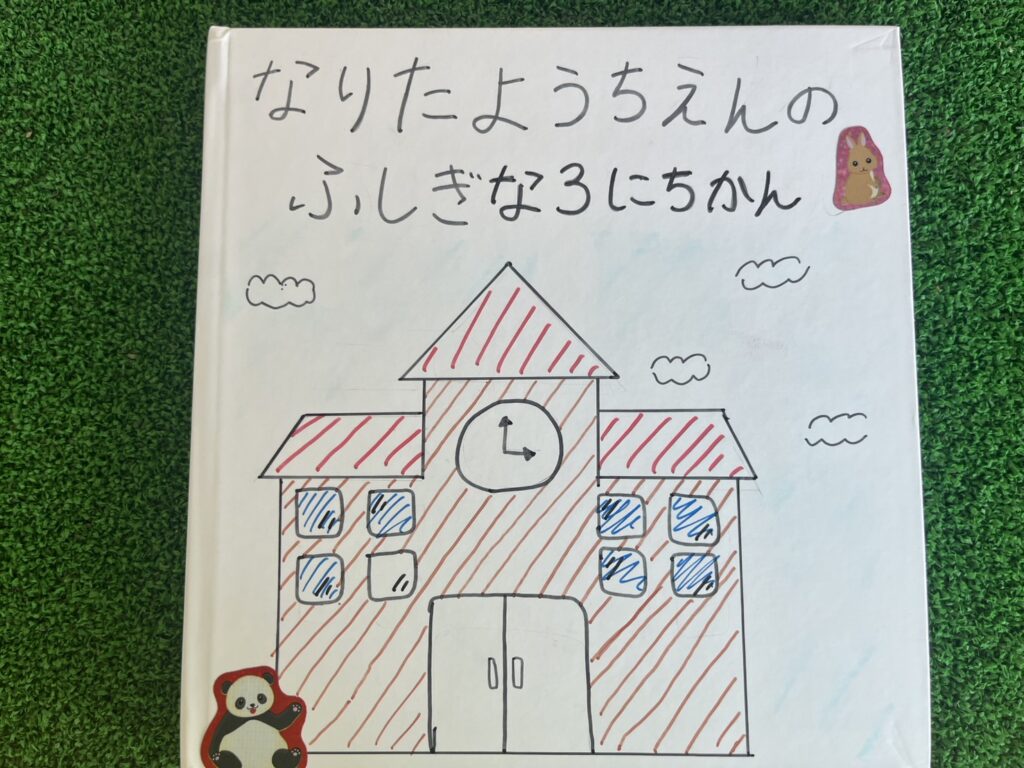 なりたようちえんの
ふしぎな3にちかん